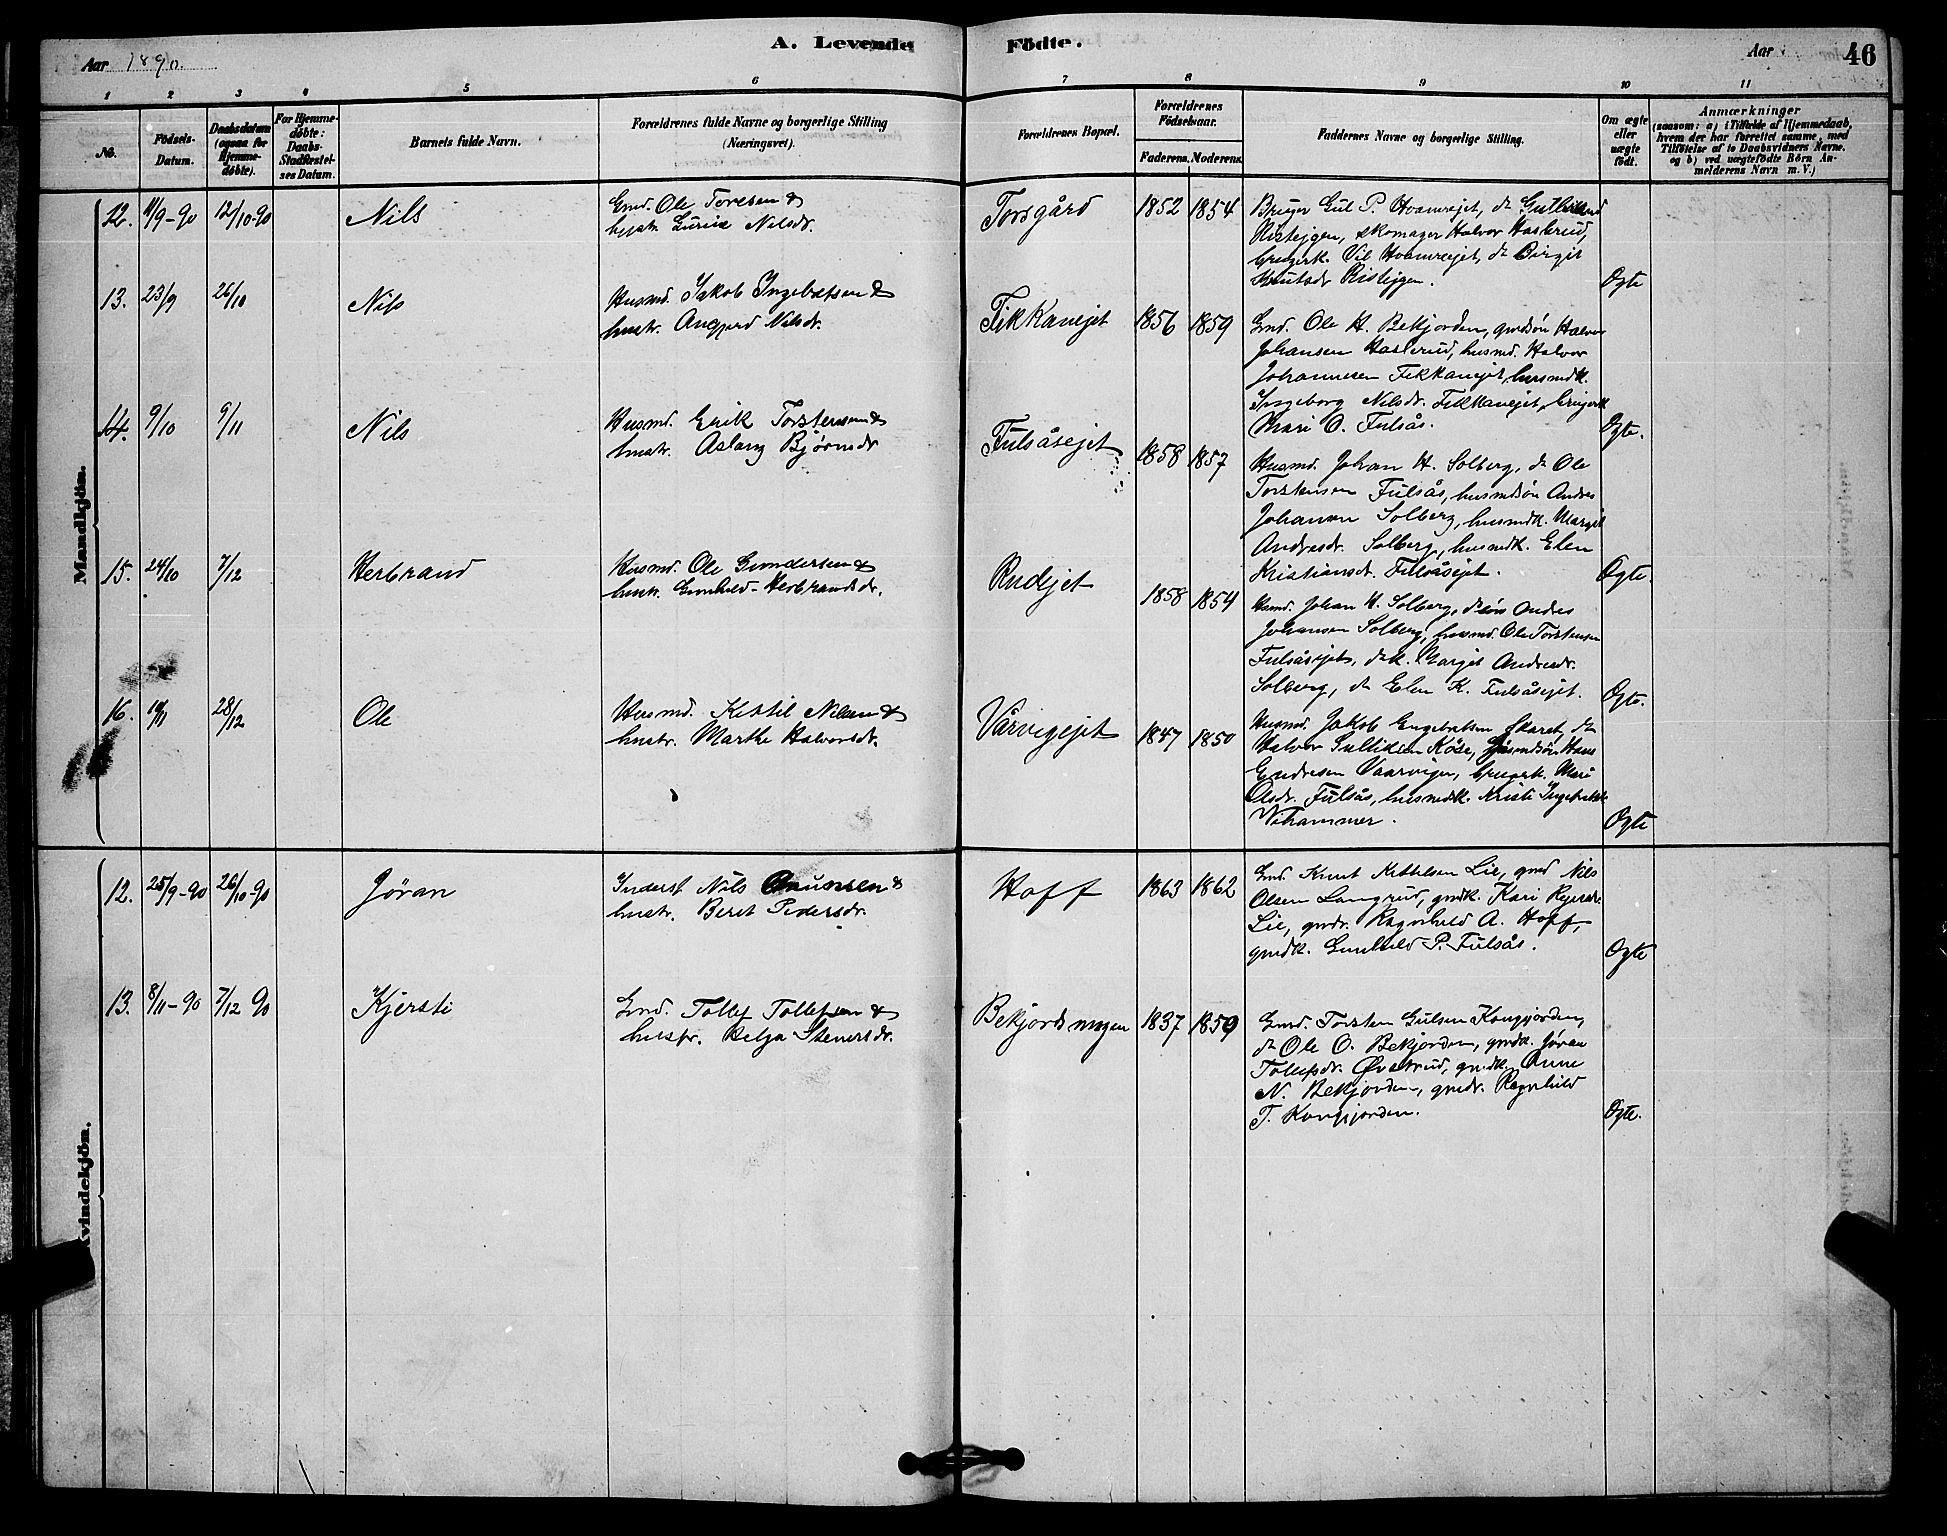 A. Levende Födte.
Aar 1890.
Aar
46
1 2 3 4 5 6 7 8 9 10 11
No.
Födsels-Datum.
Daabsdatum (ogsaa for Hjemmedöbte).
For Hjemmedöbte: Daabs-Stadfæstelses Datum.
Barnets fulde Navn.
Forældrenes fulde Navne og borgerlige Stilling (Næringsvei).
Forældrenes Bopæl.
Forældrenes Födselsaar.
Faderens. Moderens.
Faddernes Navne og borgerlige Stilling.
Om ægte eller uægte födt.
Anmærkninger
(saasom: a) i Tilfælde af Hjemmedaab, hvem der har forrettet samme, med Tilföielse af to Daabsvidners Navne. og b) ved uægtefödte Börn Anmelderens Navn m. V.)
Mandkjön.
12. 11/9-90 12/10-90 Nils
Gmd. Ole Toresen &
hustr. Nilsdr.
Torsgård 1852 1854
Bruger Gul P. Hvamsejet, do
skomager Halvor Haslerud,
Hvamsejet, do Birgit
Knutsdr
Ægte
13. 23/9 26/10 Nils
Husmd. Jakob Ingebretsen &
hustr. Angjerd Nilsdr.
Fikkanejet 1856 1859
Gmd. Ole H. Bekjorden, gmdsön Halvor
Johansen Haslerud, husmd. Halvor
Johannesen Fikkanejet, husmdk.
Ingeborg Nilsdr. Fikkanejet, brugerk
Mari O. Fulsås.
Ægte.
14. 9/10 9/11 Nils
Husmd. Erik Torstensen &
hustr. Aslaug Bjørnsdr
Fulsåsejet 1858 1857
Husmd. Johan H. Solberg, do Ole
Torstensen Fulsås, husmdsön Andres
Johansen Solberg, husmdk. Margit
Andresdr. Solberg, husmdk. Elen
Kristiansdr. Fulsåsejet.
Ægte.
15. 24/10 7/12 Herbrand
Husmd. Ole Gundersen &
hustr. Gunhild Herbrandsdr.
Rudejet 1858 1854
Husmd. Johan H. Solberg, do sön Andres
Johansen Solberg, husmd. Ole Torstensen
Fulsåsejet, do k. Margit Andresdr.
Solberg, do Elen K. Fulsåsejet.
Ægte.
16. 28/12 Ole
Husmd. Kittil Nilsen &
hustr. Marthe Halvorsdr.
Vårvigejet 1847 1850
Husmd. Jakob Engebretsen Skaret, do
Halvor Gulliksen Köse, husmdsön Hans
Endresen Vaarvigen, brugerk. Mari
Olsdr. Fulsås, husmdk. Kristi Ingebretsdr
Vihammer.
Ægte
Kvindekjön.
12. 25/9-90 26/10-90 Jöran
Inderst Nils Amunsen &
hustr. Berit Pedersdr.
Hoff 1863 1862
Gmd. Knut Kittelsen Lie, gmd Nils
Olsen Langrud, gmdk. Kari
Lie, gmdr. Ragnhild A. Hoff,
gmdk. Gunhild P. Fulsås.
Ægte
13. 8/11-90 7/12 90 Kjersti
Gmd. Tollef Tollefsen &
hustr. Helga Stenersdr.
Bekjordsmogen 1837 1859
Gmd. Torsten Gulsen Kongjorden,
do Ole O. Bekjorden, gmdk. Jöran
Tollefsdr. Øvstrud, gmdk. Anne
N. Bekjorden, gmdr. Ragnhild
T. Kongjorden.
Ægte.